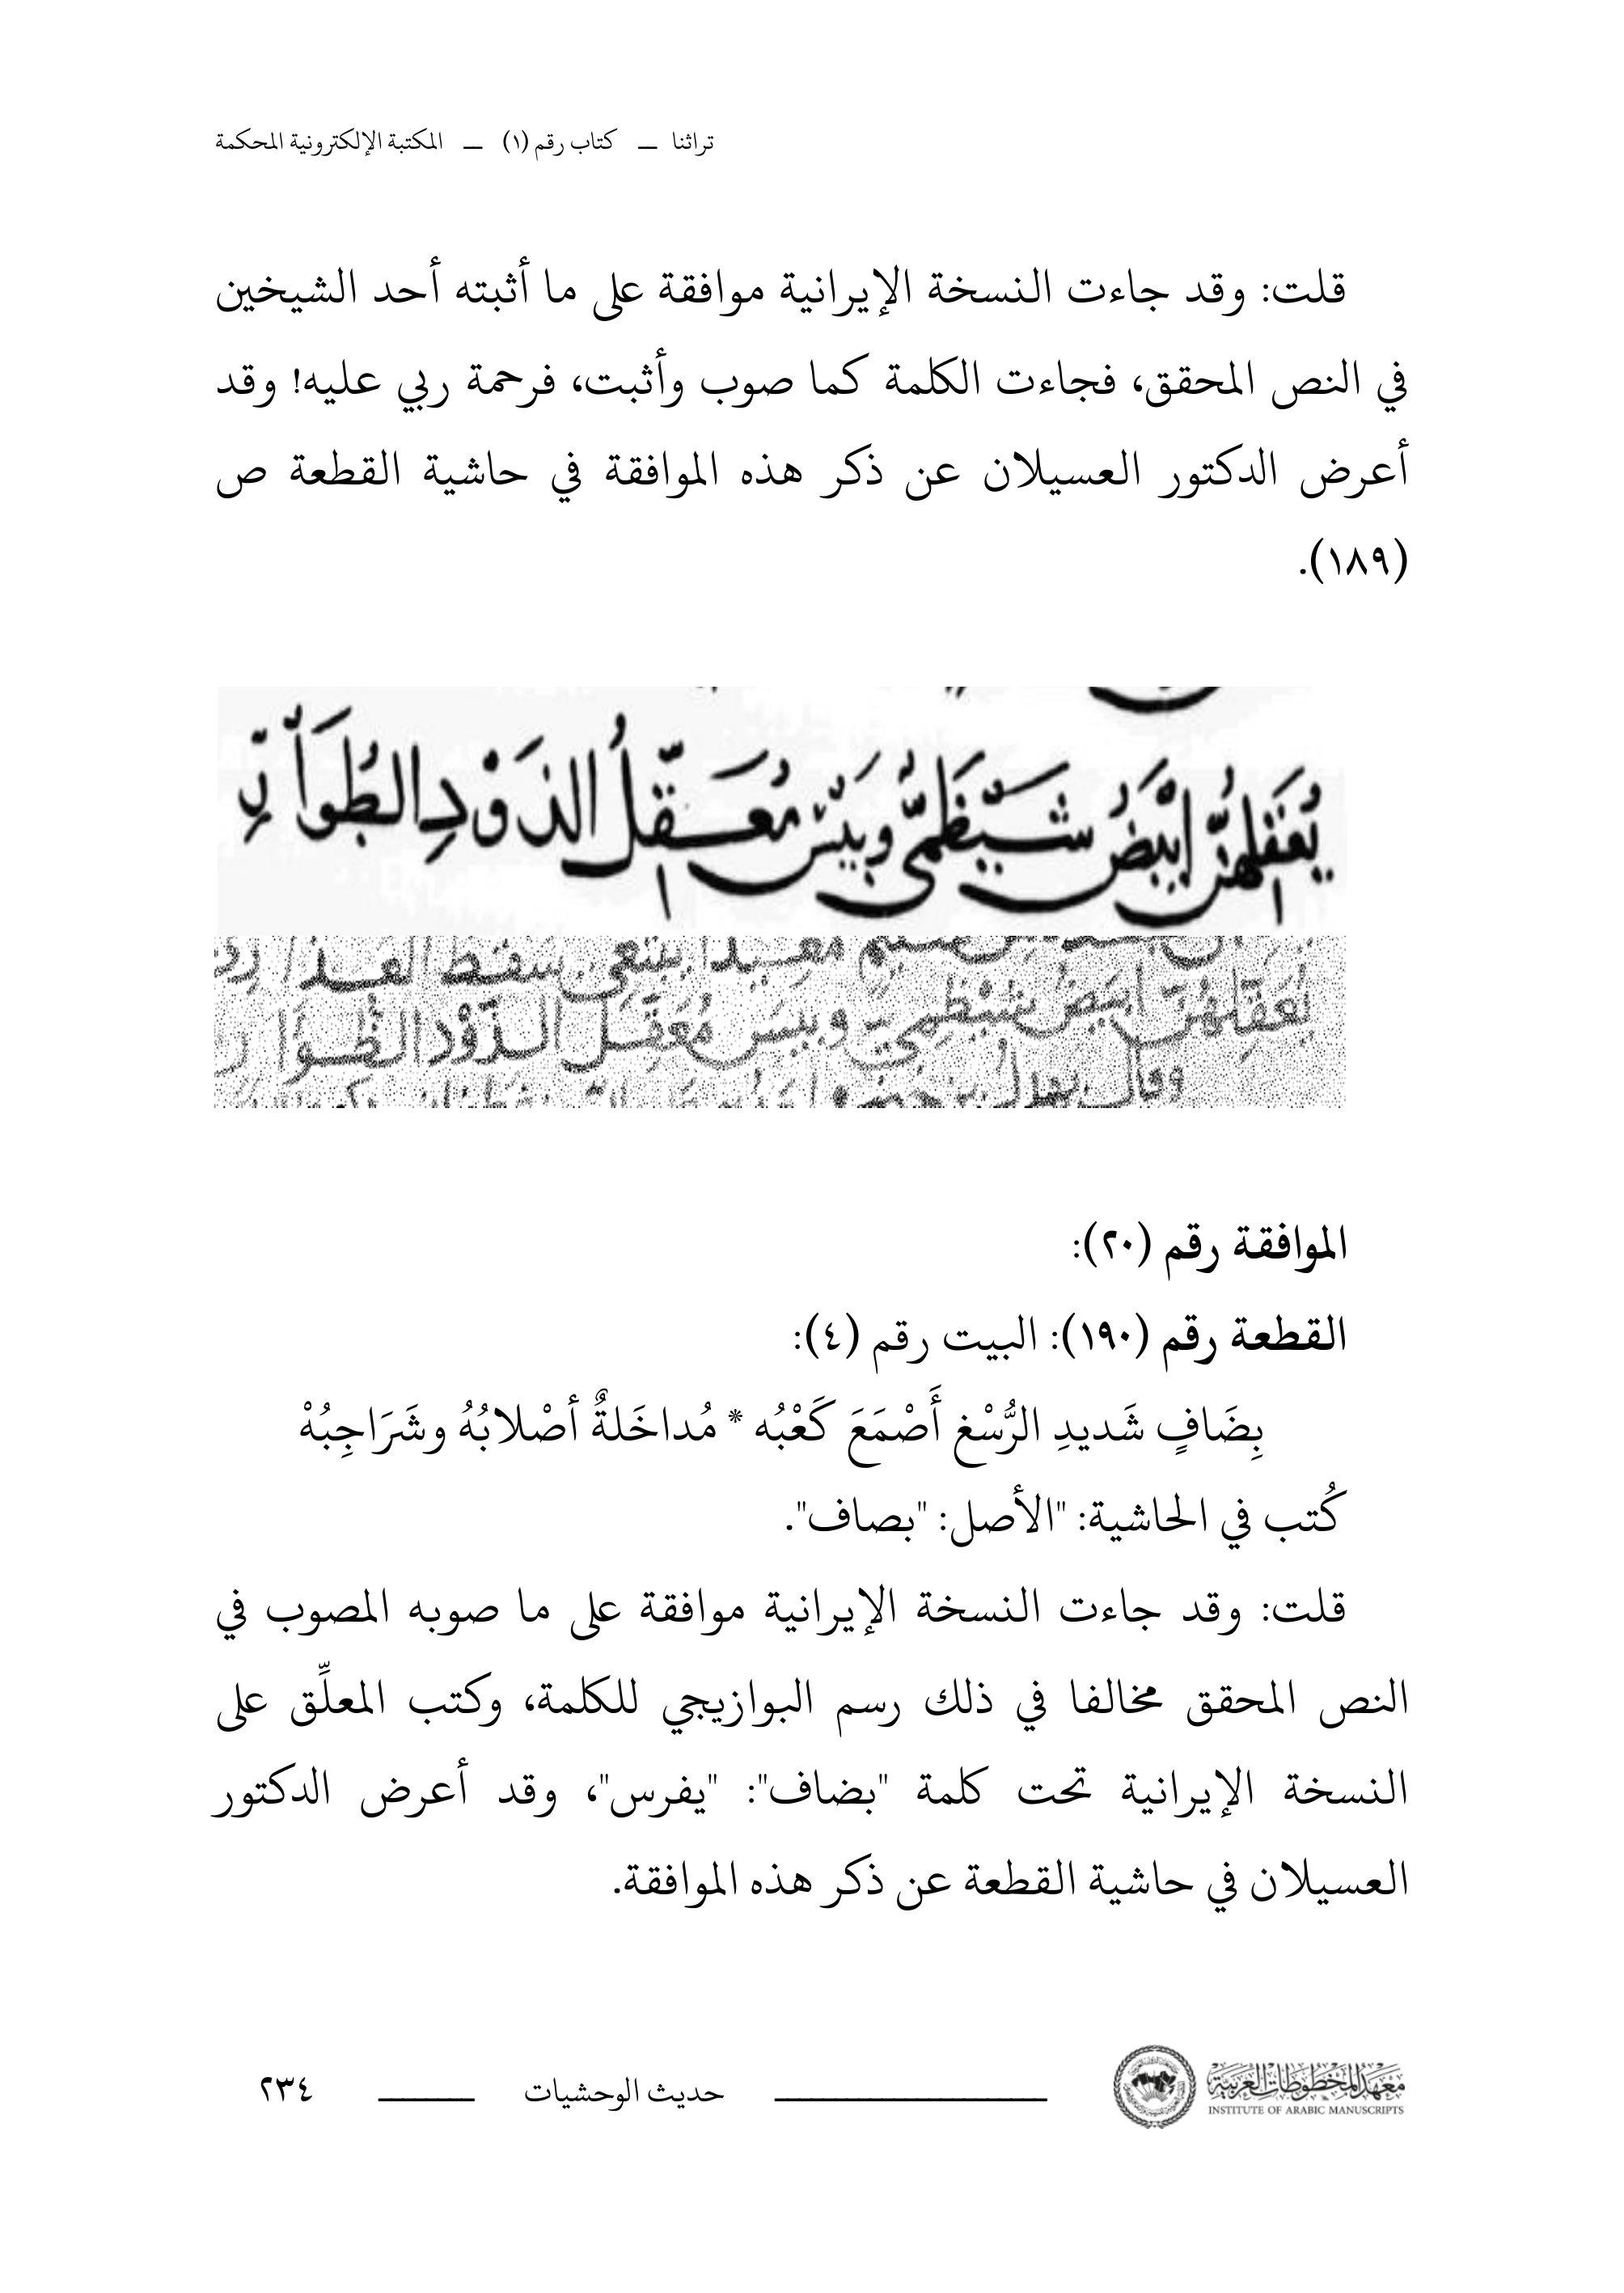 تراثنا ـــ كتاب رقم (١) ـــ المكتبة الإلكترونية المحكمة
قلت: وقد جاءت النسخة الإيرانية موافقة على ما أثبته أحد الشيخين
في النص المحقق، فجاءت الكلمة كما صوب وأثبت، فرحمة ربي عليه! وقد
أعرض الدكتور العسيلان عن ذكر هذه الموافقة في حاشية القطعة ص
(١٨٩).
ابيض شيظمي وبيس معقل الذود الطوار
معيدا يبتغي سقط العذارى
يعقلهن ابيض شيظمي وبيس معقل الذود الظوار
وقال
الموافقة رقم (٢٠):
القطعة رقم (١٩٠): البيت رقم (٤):
بِضَافٍ شَديدِ الرُّسْغِ أَصْمَعَ كَعْبُه * مُداخَلةٌ أصْلابُهُ وشَرَاجِبُهْ
كُتب في الحاشية: "الأصل: "بصاف".
قلت: وقد جاءت النسخة الإيرانية موافقة على ما صوبه المصوب في
النص المحقق مخالفا في ذلك رسم البوازيجي للكلمة، وكتب المعلِّق على
النسخة الإيرانية تحت كلمة "بضاف": "يفرس"، وقد أعرض الدكتور
العسيلان في حاشية القطعة عن ذكر هذه الموافقة.
معهد المخطوطات العربية
INSTITUTE OF ARABIC MANUSCRIPTS
حديث الوحشيات
٢٣٤